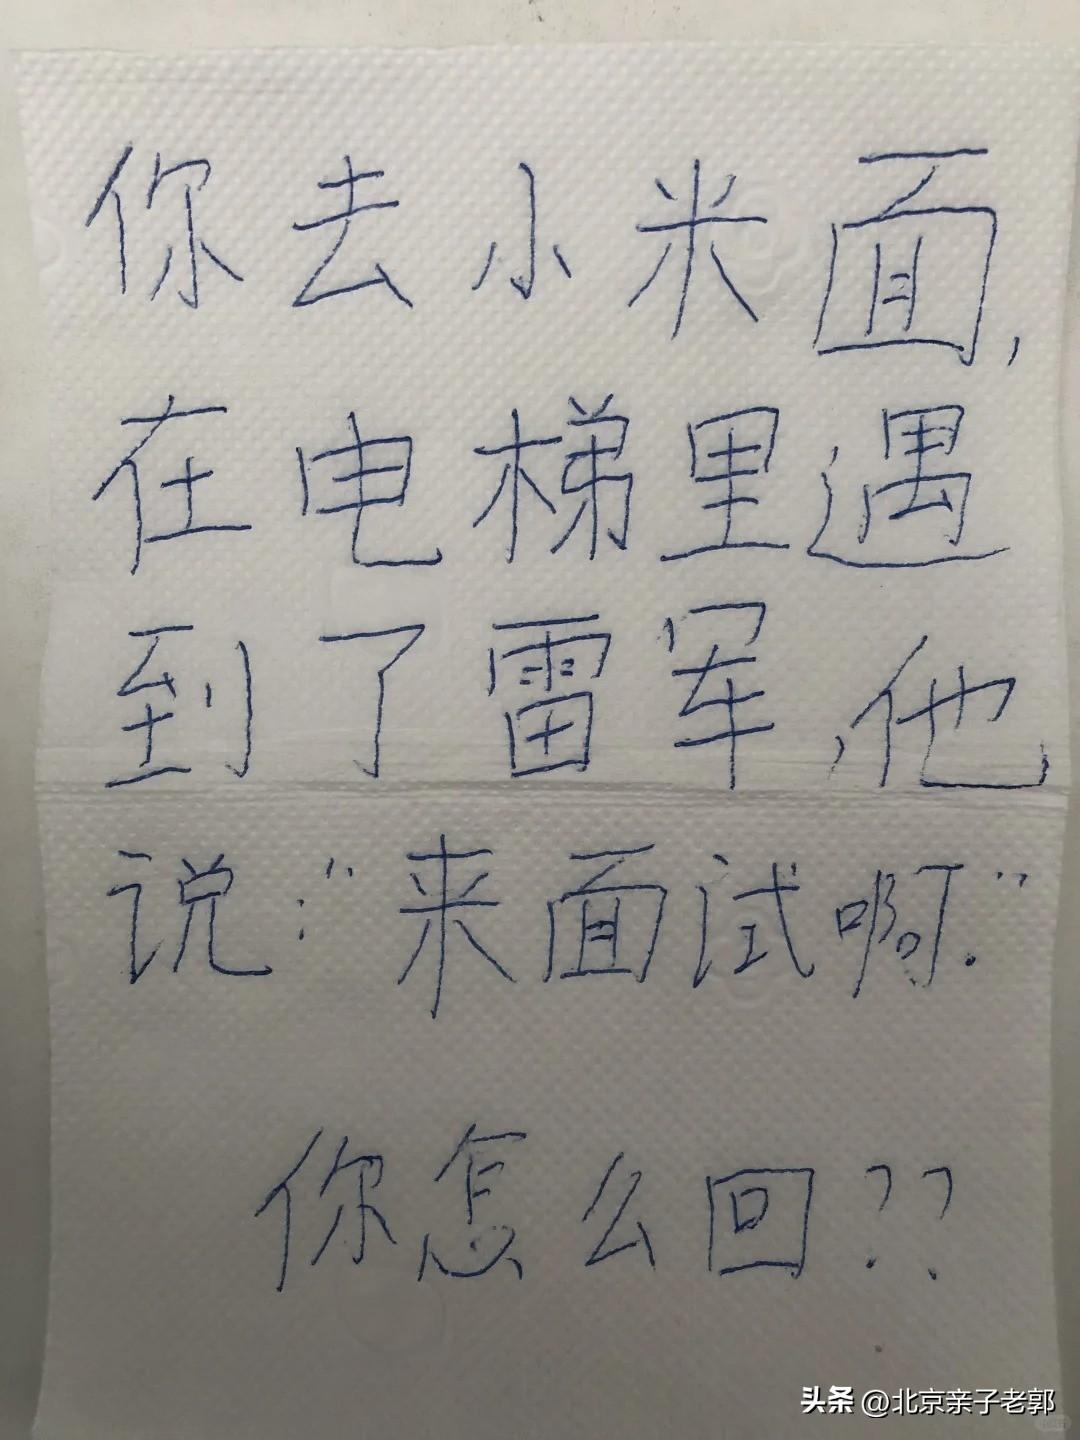 你去小米面，
在电梯里遇
到了雷军，他
说："来面试啊."
你怎么回??
头条 @北京亲子老郭